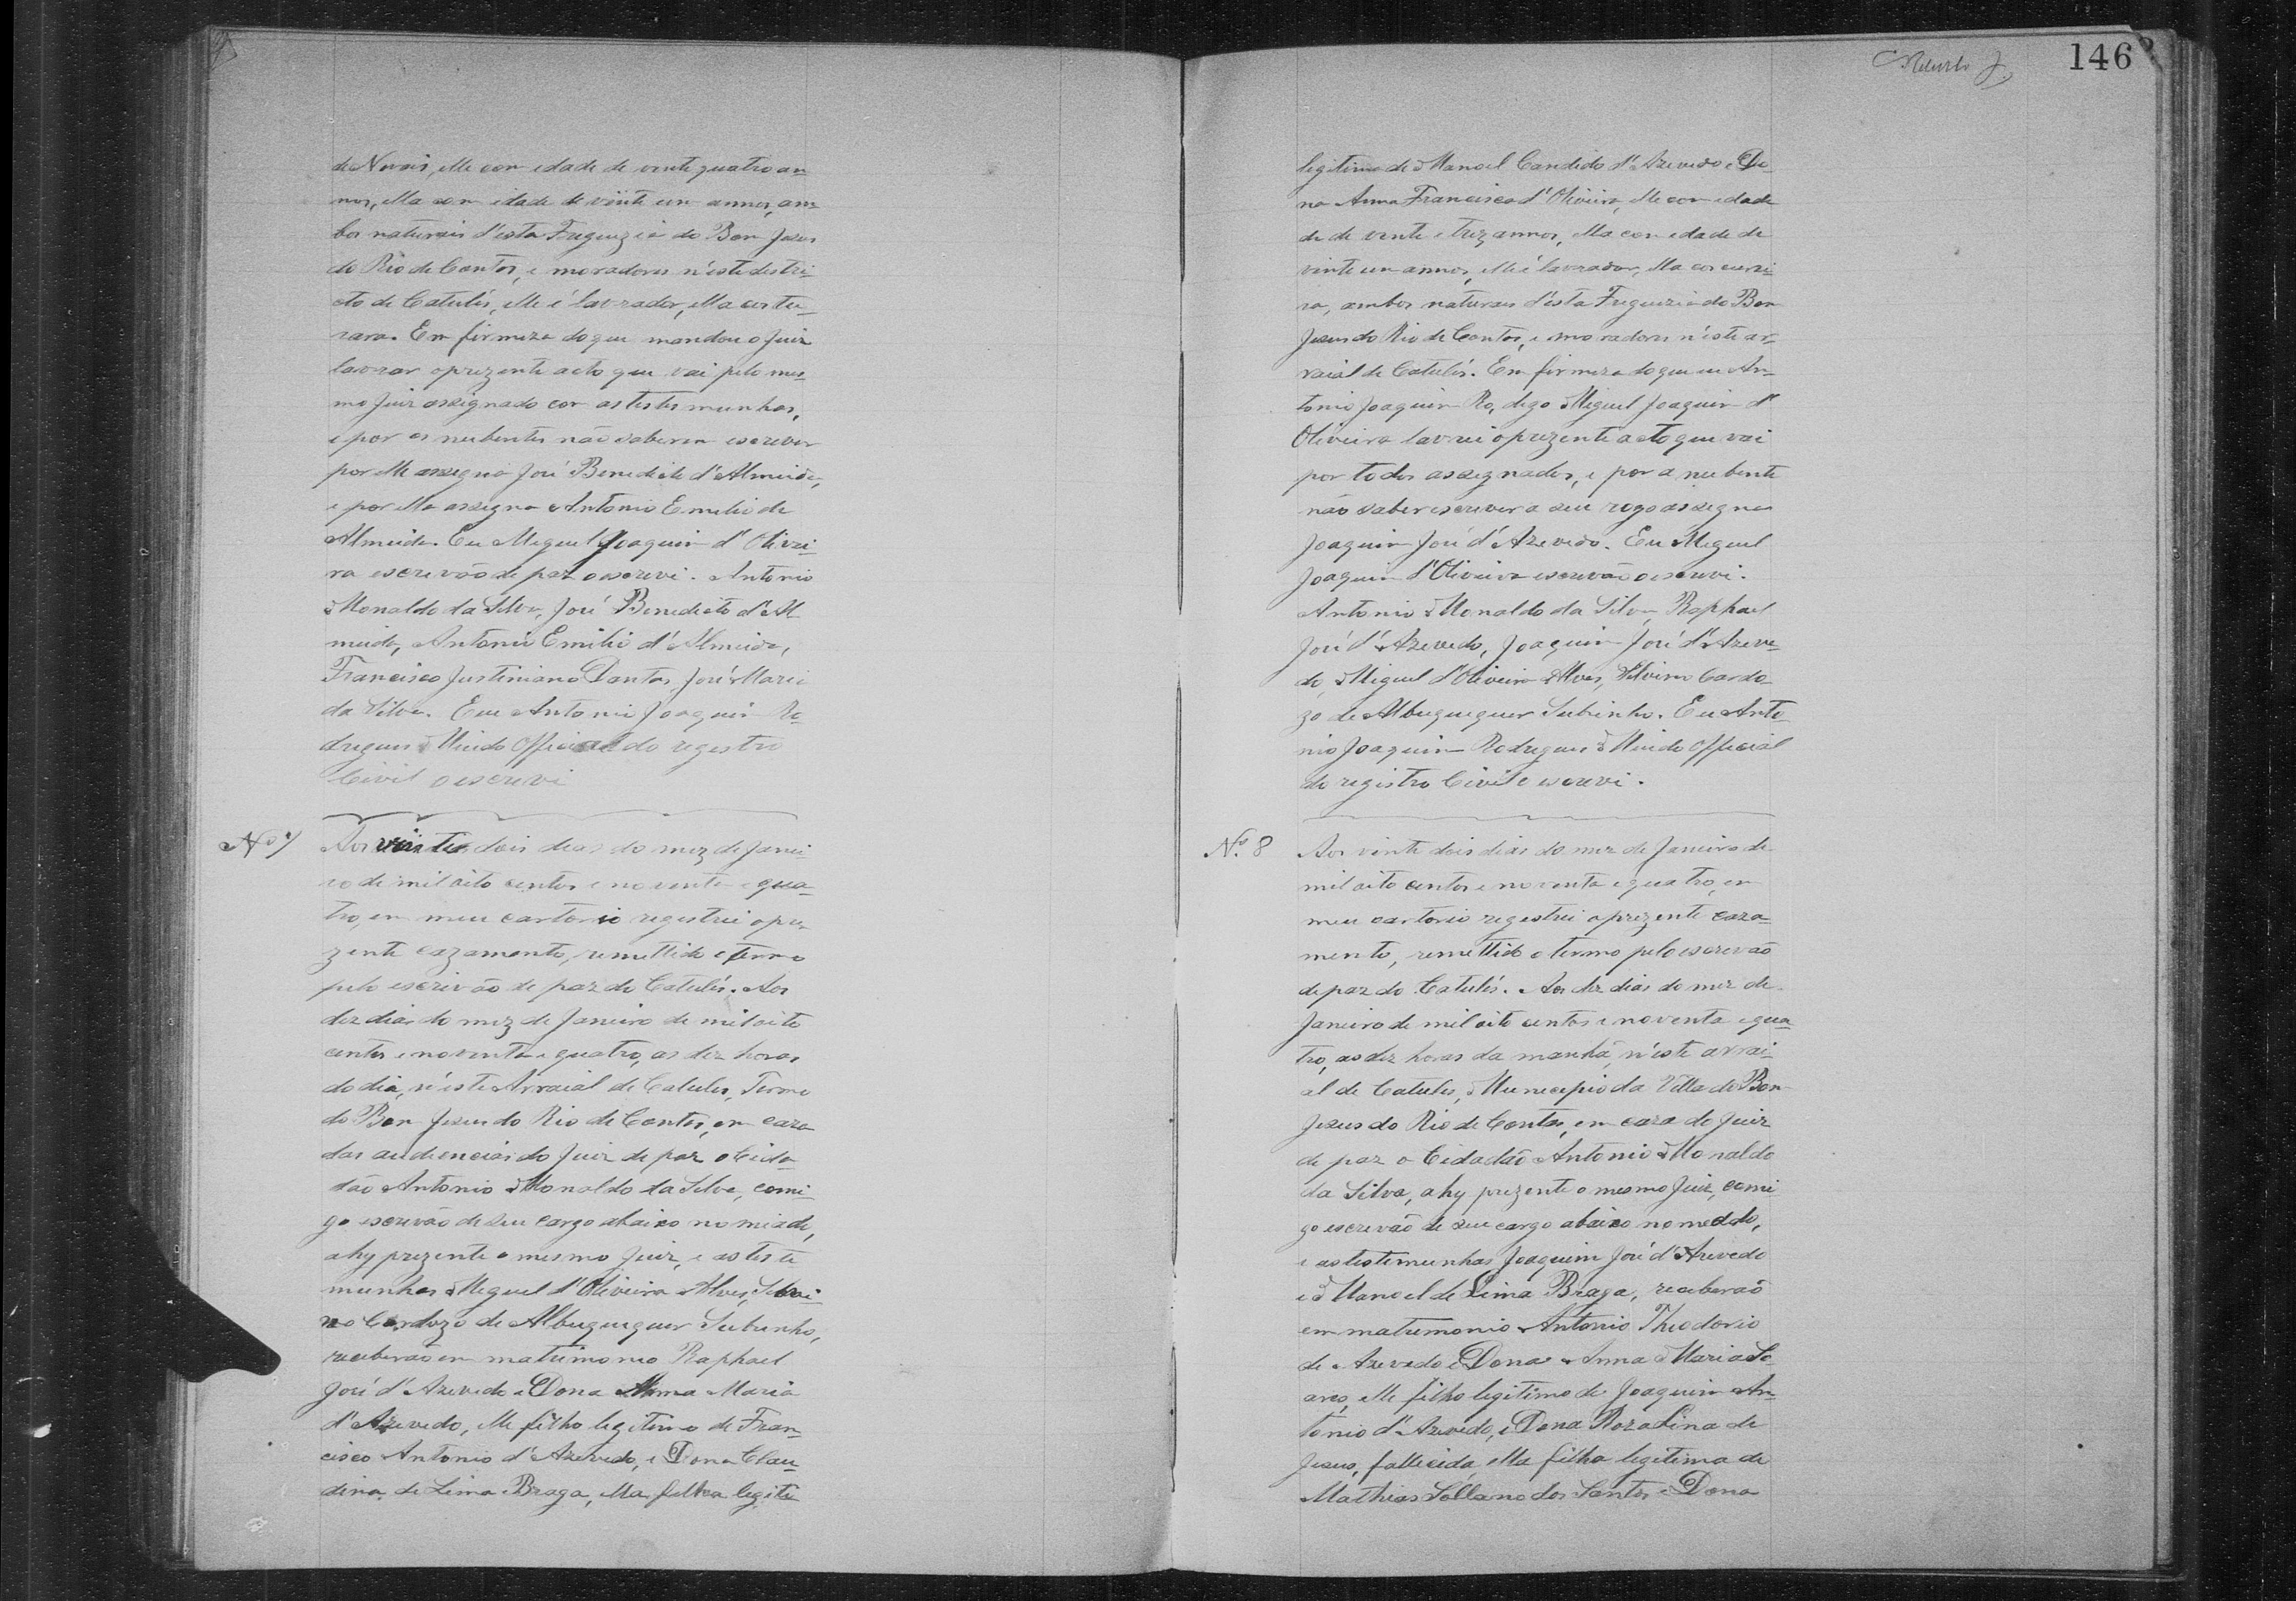 de Novais, elle com edade de vente quatro an
nos, ella com idade de vinte um annos, am
bos naturais d'esta Freguezia do Bom Jesus
do Rio de Contas, e moradores n'este destri-
cto de Catulés, elle é lavrador, ella costu-
rara. Em firmeza do que mandou o Juiz
lavrar o prezente acto que vai pelo mes-
mo Juiz assignado com as testemunhas,
e por os nubentes não saberem escrever
por elle assigna José Benedicto d'Almeida,
e por ella assigna Antonio Emilio de
Almeida. Eu Miguel Joaquim d'Olivei-
ra escrevão de paz o escrevi. Antonio
Monaldo da Silva, José Benedicto d'Al
meida, Antonio Emilio d'Almeida,
Francisco Justiniano Dantas, José Maria
da Silva. Eu Antonio Joaquim Ro-
drigues Official do registro
Civil o escrevi
Nº 7
Aos vinte dois dias do mez de Janei-
ro de mil oito centos e noventa e qua-
tro, em meu cartorio registrei o pre-
zente cazamento, remettido o termo
pelo escrivão de paz do Catulés. Aos
dez dias do mez de Janeiro de mil oito
centos e noventa e quatro, as dez horas
do dia, n'este Arraial de Catules, Termo
do Bom Jesus do Rio de Contas, em caza
das audiencias do Juiz de paz o Cida-
dão Antonio Monaldo da Silva, comi-
go escrevão de seu cargo abaixo nomiado,
ahy prezente o mesmo Juiz, e as teste
munhas Miguel d'Oliveira Alves, Silvi-
no Cardozo de Albuquerquer Subrinho,
receberão em matrimonio Raphael
José d'Azevedo e Dona Anna Maria
d'Azevedo, elle filho legitimo de Fran-
cisco Antonio d'Azevedo, e Dona Clau-
dina de Lima Braga, ella filha legiti
146
legitima de Manoel Candido d'Azevedo e Do-
na Anna Francisca d'Oliveira, elle com edade
de de vente e trez annos, ella com edade de
vinte um annos, elle é lavrador, ella
ambos naturais d'esta Freguezia do Bom
Jesus do Rio de Contas, e moradores n'este ar-
raial de Catulés. Em firmeza do que eu An-
tonio Joaquim Ro, digo Miguel Joaquim d'
Oliveira lavrei o prezente acto que vai
por todos assegnados, e por a nubente
não saber escrever a seu rogo assegna
Joaquim José d'Azevedo. Eu Miguel
Joaquim d'Oliveira escrevão o escrevi.
Antonio Monaldo da Silva, Raphael
José d'Azevedo, Joaquim José d'Azeve-
do, Miguel d'Oliveira Alves, Silvino Cardo-
zo de Albuquerquer Subrinho. Eu Anto-
nio Joaquim Rodrigues Official
do registro Civil o escrevi.
Nº. 8
Aos vinte dois dias do mez de Janeiro de
mil oito centos e noventa e quatro, em
meu cartorio registrei o prezente caza-
mento, remettido o termo pelo escrevão
de paz do Catulés. Aos dez dias do mez de
Janeiro de mil oito centos e noventa e qua-
tro, as dez horas da manhã, n'este arrai-
al de Catules, Municepio da Villa do Bom
Jesus do Rio de Contas, em caza do Juiz
de paz o Cidadão Antonio Monaldo
da Silva, ahy prezente o mesmo Juiz, comi
go escrevão de seu cargo abaixo nomeado,
e as testemunhas Joaquim José d'Azevedo
e Manoel de Lima Braga, receberão
em matremonio Antonio Theodorio
de Azevedo e Dona Anna Maria So-
ares, elle filho legitimo de Joaquim An-
tonio d'Azevedo, e Dona Roza Lina de
Jesus, fallecida, ella filha legitima de
Mathias Sollano dos Santos e Dona